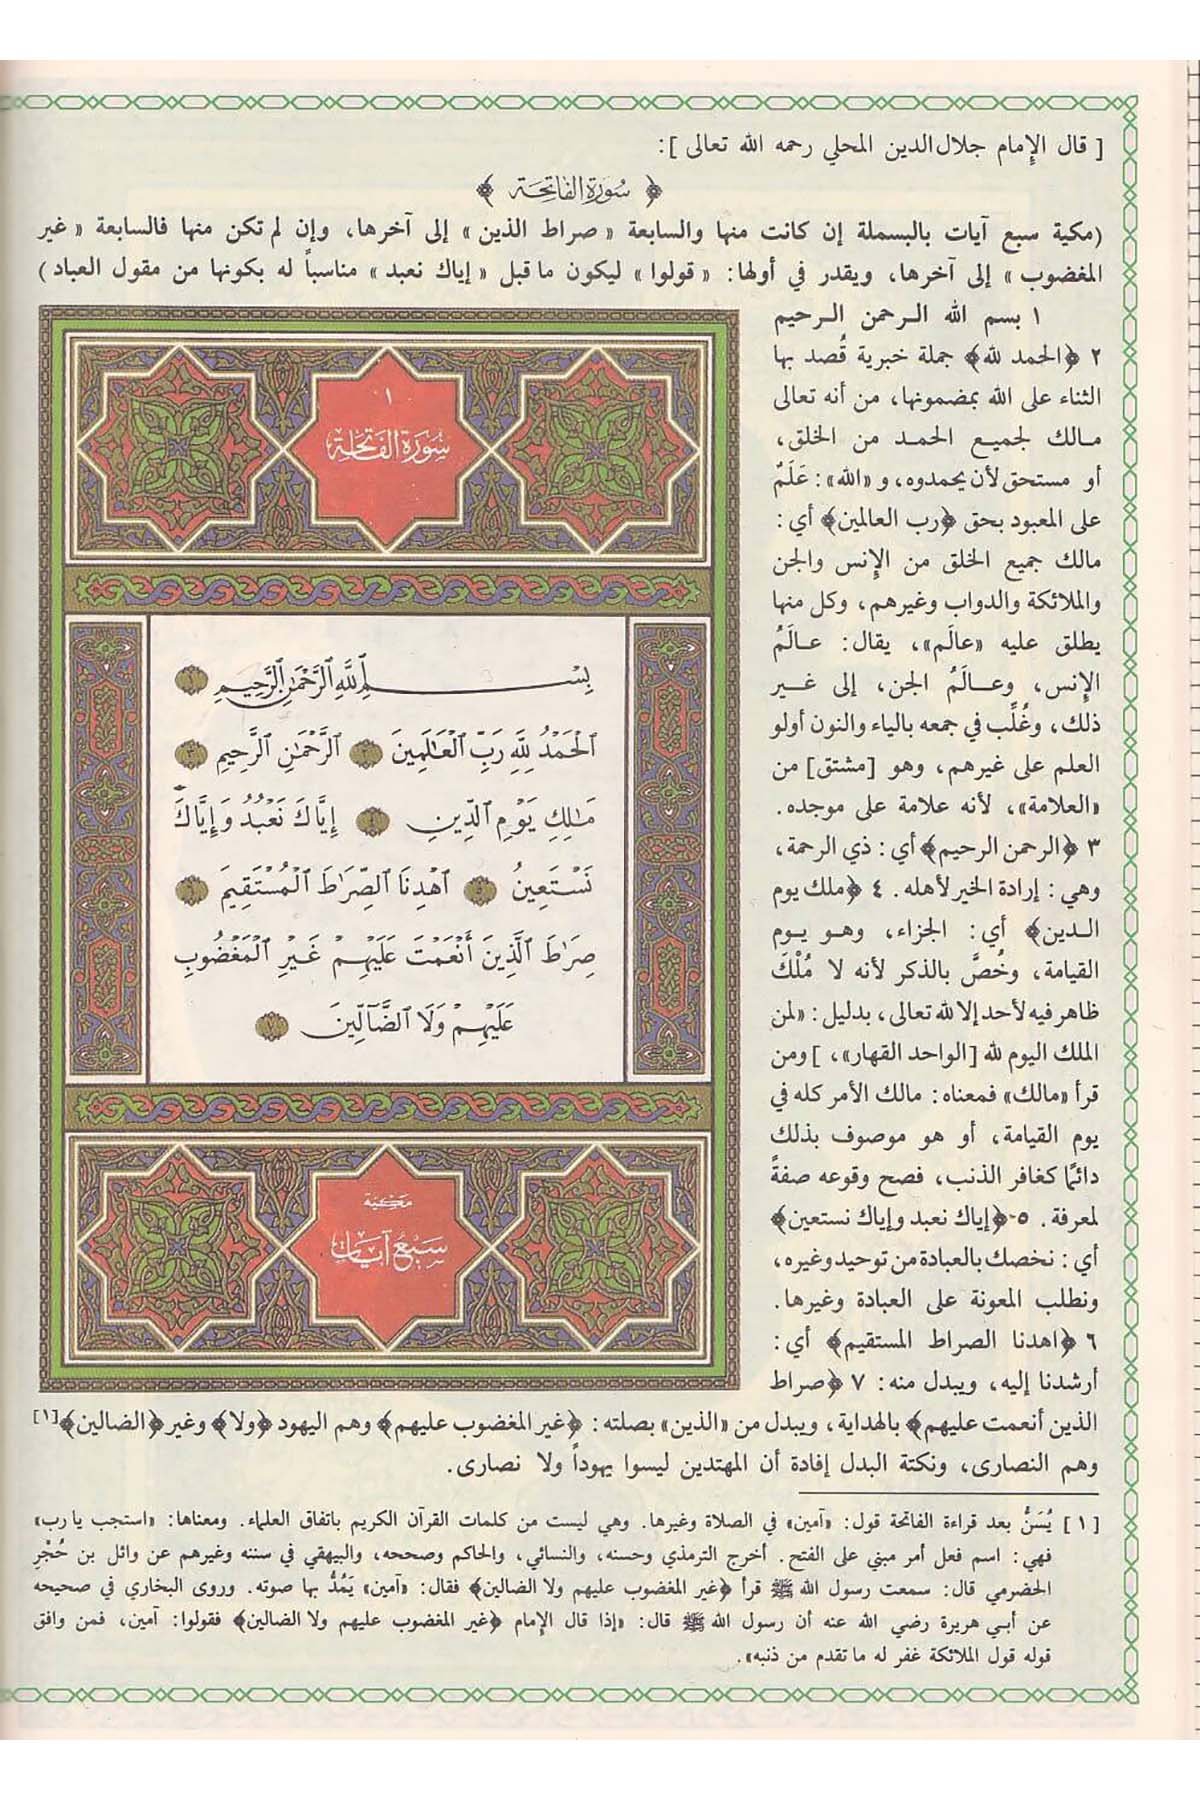 [ قال الإمام جلال الدين المحلي رحمه الله تعالى ]:
﴿ سُورَة الفَاتِحَة ﴾
(مكية سبع آيات بالبسملة إن كانت منها والسابعة « صراط الذين » إلى آخرها، وإن لم تكن منها فالسابعة « غير
المغضوب » إلى آخرها، ويقدر في أولها: « قولوا » ليكون ما قبل « إياك نعبد » مناسباً له بكونها من مقول العباد )
١ بسم الله الرحمن الرحيم
٢ ﴿الحمد لله﴾ جملة خبرية قُصد بها
الثناء على الله بمضمونها، من أنه تعالى
مالك لجميع الحمد من الخلق،
أو مستحق لأن يحمدوه، و «الله»: عَلَمٌ
على المعبود بحق ﴿رب العالمين﴾ أي:
مالك جميع الخلق من الإنس والجن
والملائكة والدواب وغيرهم، وكل منها
يطلق عليه «عالَم»، يقال: عالَمُ
الإنس، وعالَمُ الجن، إلى غير
ذلك، وغُلِّب في جمعه بالياء والنون أولو
العلم على غيرهم، وهو [مشتق] من
«العلامة»، لأنه علامة على موجده.
٣ ﴿الرحمن الرحيم﴾ أي: ذي الرحمة،
وهي: إرادة الخير لأهله. ٤ ﴿ملك يوم
الدين﴾ أي: الجزاء، وهو يوم
القيامة، وخُصَّ بالذكر لأنه لا مُلْكَ
ظاهر فيه لأحد إلا لله تعالى، بدليل: «لمن
الملك اليوم لله [الواحد القهار»، ] ومن
قرأ «مالك» فمعناه: مالك الأمر كله في
يوم القيامة، أو هو موصوف بذلك
دائمًا كغافر الذنب، فصح وقوعه صفةً
لمعرفة. ٥-﴿إياك نعبد وإياك نستعين﴾
أي: نخصك بالعبادة من توحيد وغيره،
ونطلب المعونة على العبادة وغيرها.
٦ ﴿اهدنا الصراط المستقيم﴾ أي:
أرشدنا إليه، ويبدل منه: ٧ ﴿صراط
الذين أنعمت عليهم﴾ بالهداية، ويبدل من «الذين» بصلته: ﴿غير المغضوب عليهم﴾ وهم اليهود ﴿ولا﴾ وغير ﴿الضالين﴾[١]
وهم النصارى، ونكتة البدل إفادة أن المهتدين ليسوا يهوداً ولا نصارى.
١
سُورَة الفَاتِحَة
بِسْمِ ٱللَّهِ ٱلرَّحْمَٰنِ ٱلرَّحِيمِ ١
ٱلْحَمْدُ لِلَّهِ رَبِّ ٱلْعَٰلَمِينَ ٢ ٱلرَّحْمَٰنِ ٱلرَّحِيمِ ٣
مَٰلِكِ يَوْمِ ٱلدِّينِ ٤ إِيَّاكَ نَعْبُدُ وَإِيَّاكَ
نَسْتَعِينُ ٥ ٱهْدِنَا ٱلصِّرَٰطَ ٱلْمُسْتَقِيمَ ٦
صِرَٰطَ ٱلَّذِينَ أَنْعَمْتَ عَلَيْهِمْ غَيْرِ ٱلْمَغْضُوبِ
عَلَيْهِمْ وَلَا ٱلضَّآلِّينَ ٧
مَكيّة
سَبْعُ آيَات
[ ١ ] يُسَنُّ بعد قراءة الفاتحة قول: «آمين» في الصلاة وغيرها. وهي ليست من كلمات القرآن الكريم باتفاق العلماء. ومعناها: «استجب يا رب»
فهي: اسم فعل أمر مبني على الفتح. أخرج الترمذي وحسنه، والنسائي، والحاكم وصححه، والبيهقي في سننه وغيرهم عن وائل بن حُجْرِ
الحضرمي قال: سمعت رسول الله ﷺ قرأ ﴿غير المغضوب عليهم ولا الضالين﴾ فقال: «آمين» يَمُدُّ بها صوته. وروى البخاري في صحيحه
عن أبي هريرة رضي الله عنه أن رسول الله ﷺ قال: «إذا قال الإمام ﴿غير المغضوب عليهم ولا الضالين﴾ فقولوا: آمين، فمن وافق
قوله قول الملائكة غفر له ما تقدم من ذنبه».